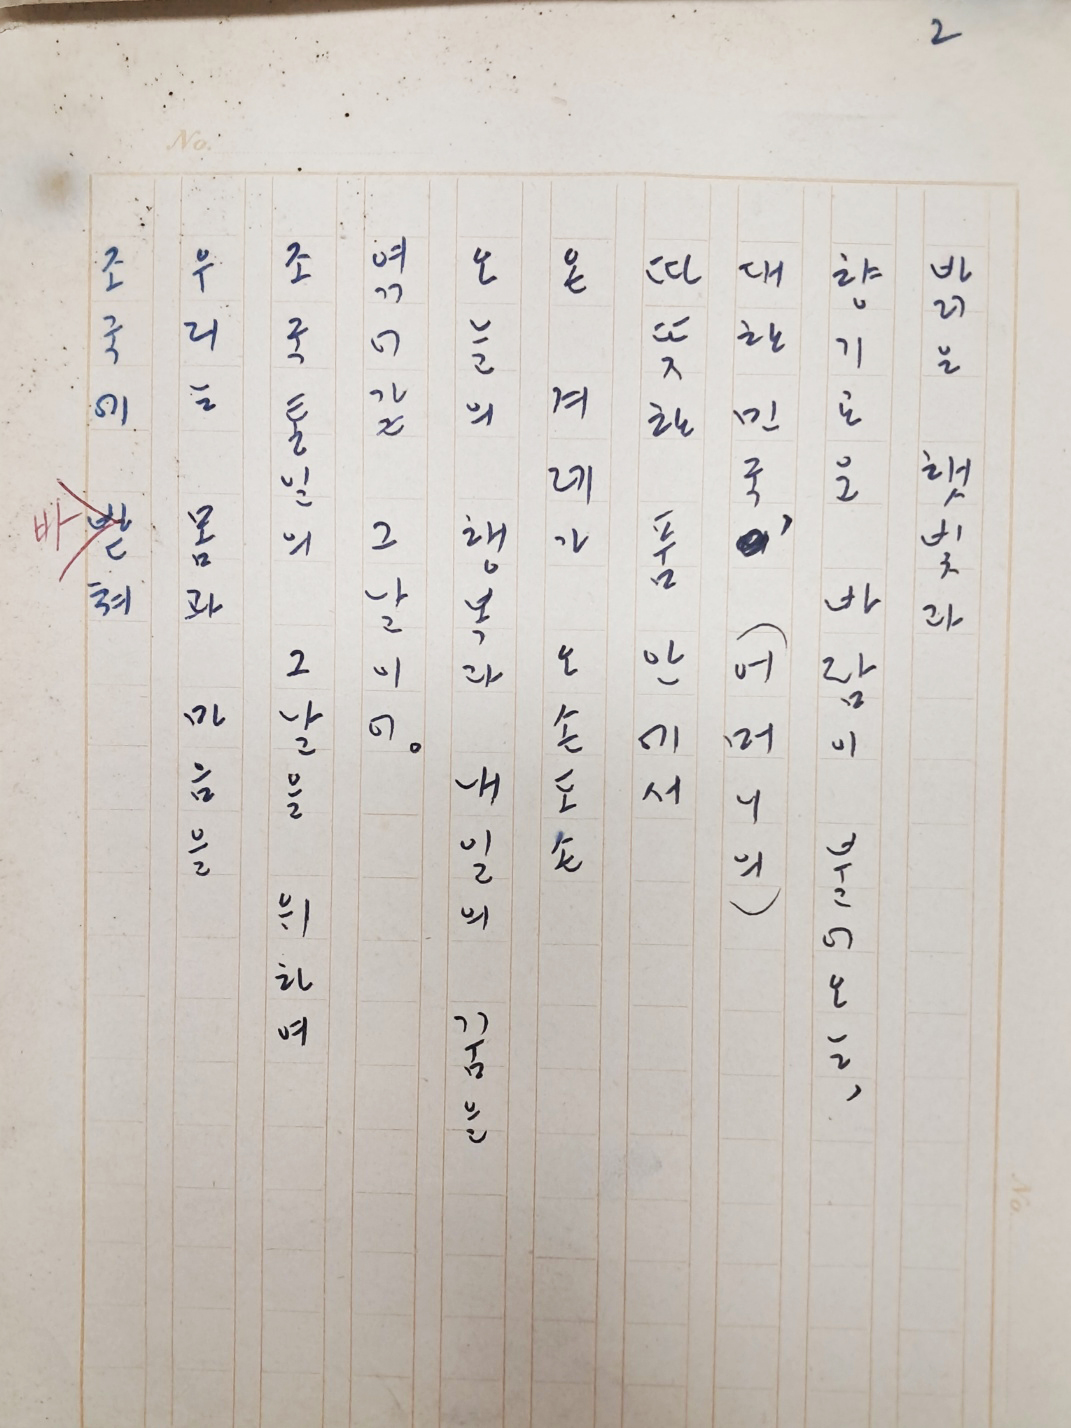 2
No.
밝은 햇빛과
향기로운 바람이 불어오는,
대한민국, (어머니의)
따뜻한 품안에서
온 겨레가 오손도손
오늘의 행복과 내일의 꿈을
엮어갈 그날이어。
조국통일의 그날을 위하여
우리는 몸과 마음을
조국에 받쳐
바
No.